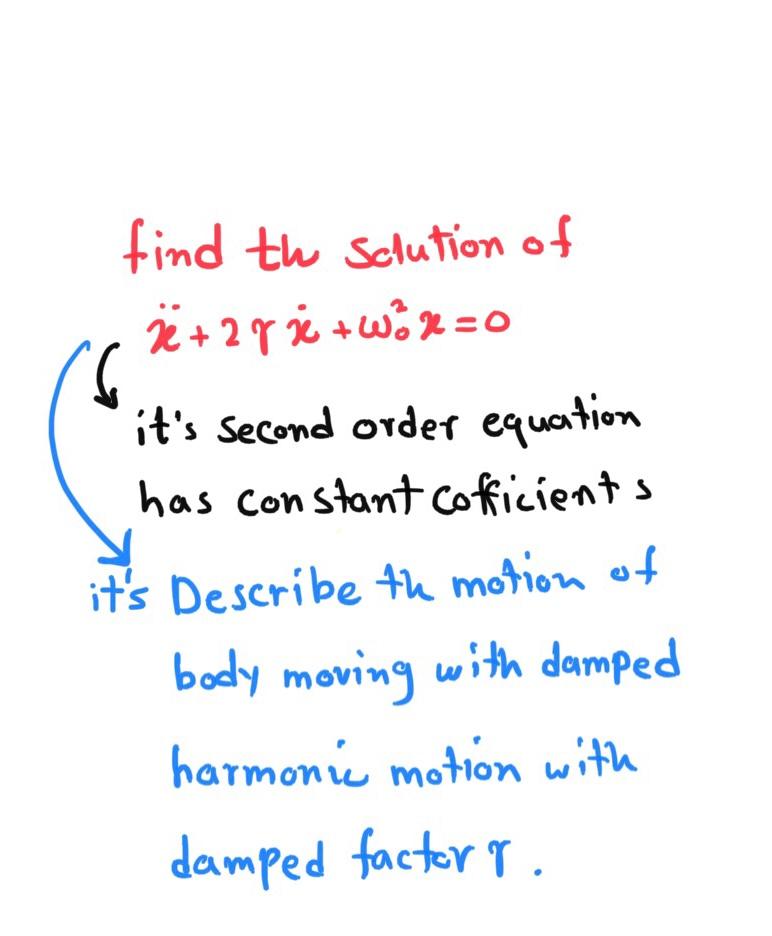 find th solution of
ẍ + 2γẋ + ω₀²x = 0
it's second order equation
has constant cofficients
it's Describe th motion of
body moving with damped
harmonic motion with
damped factor γ.